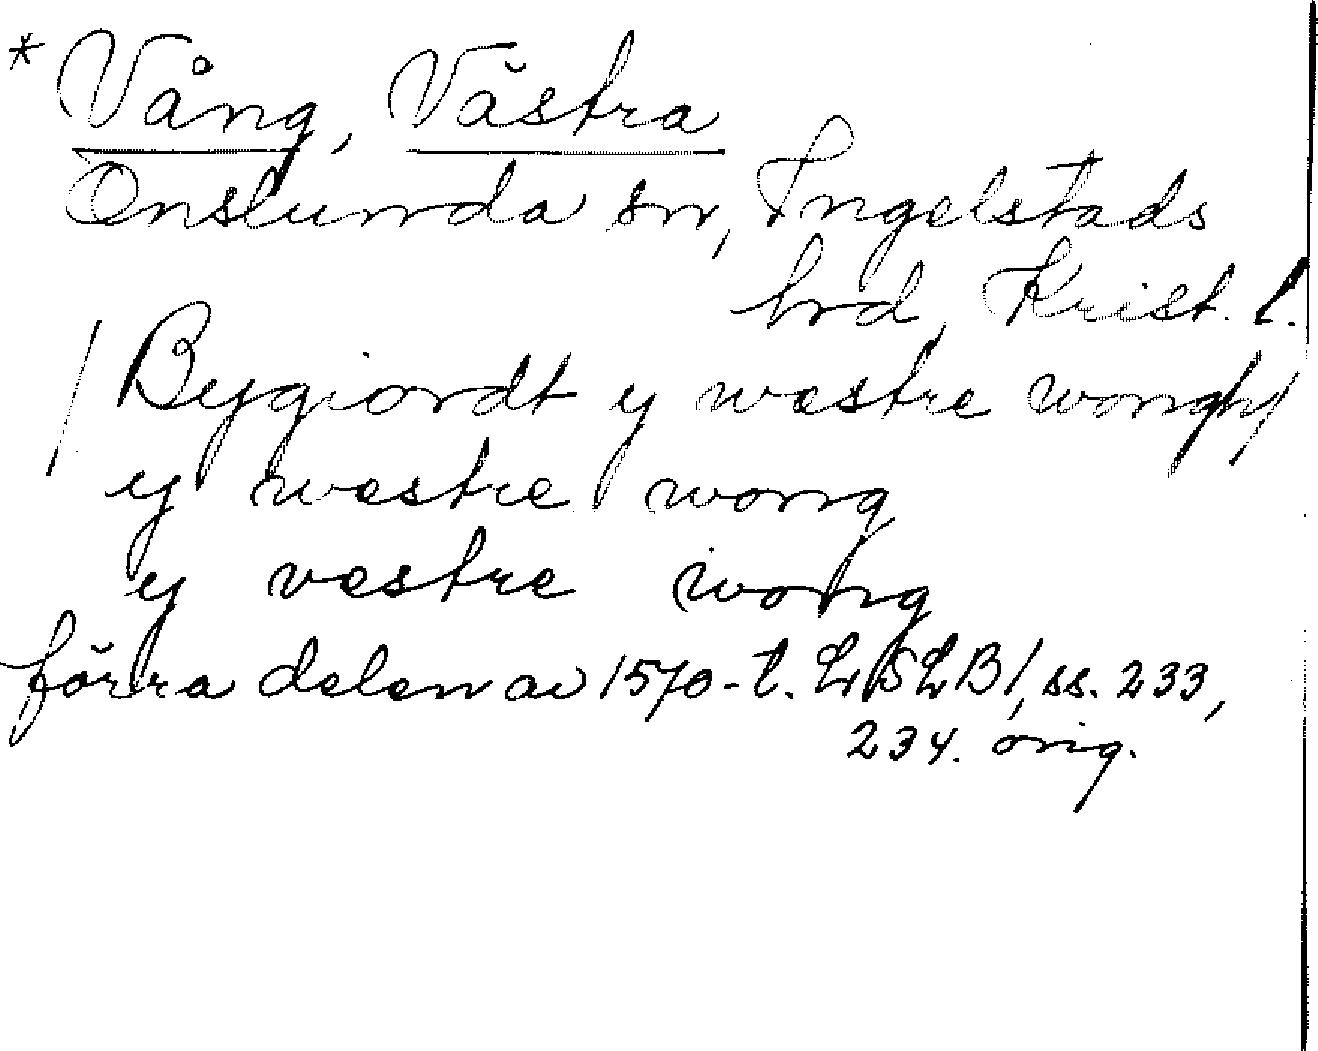 * Vång, Västra
Onslunda sn, Ingelstads
hrd, Krist. l.
/Bygiordt y wæstre wongh/
y wæstre wong
y væstre wong
förra delen av 1570-t. LLSLB1, ss. 233,
234. orig.